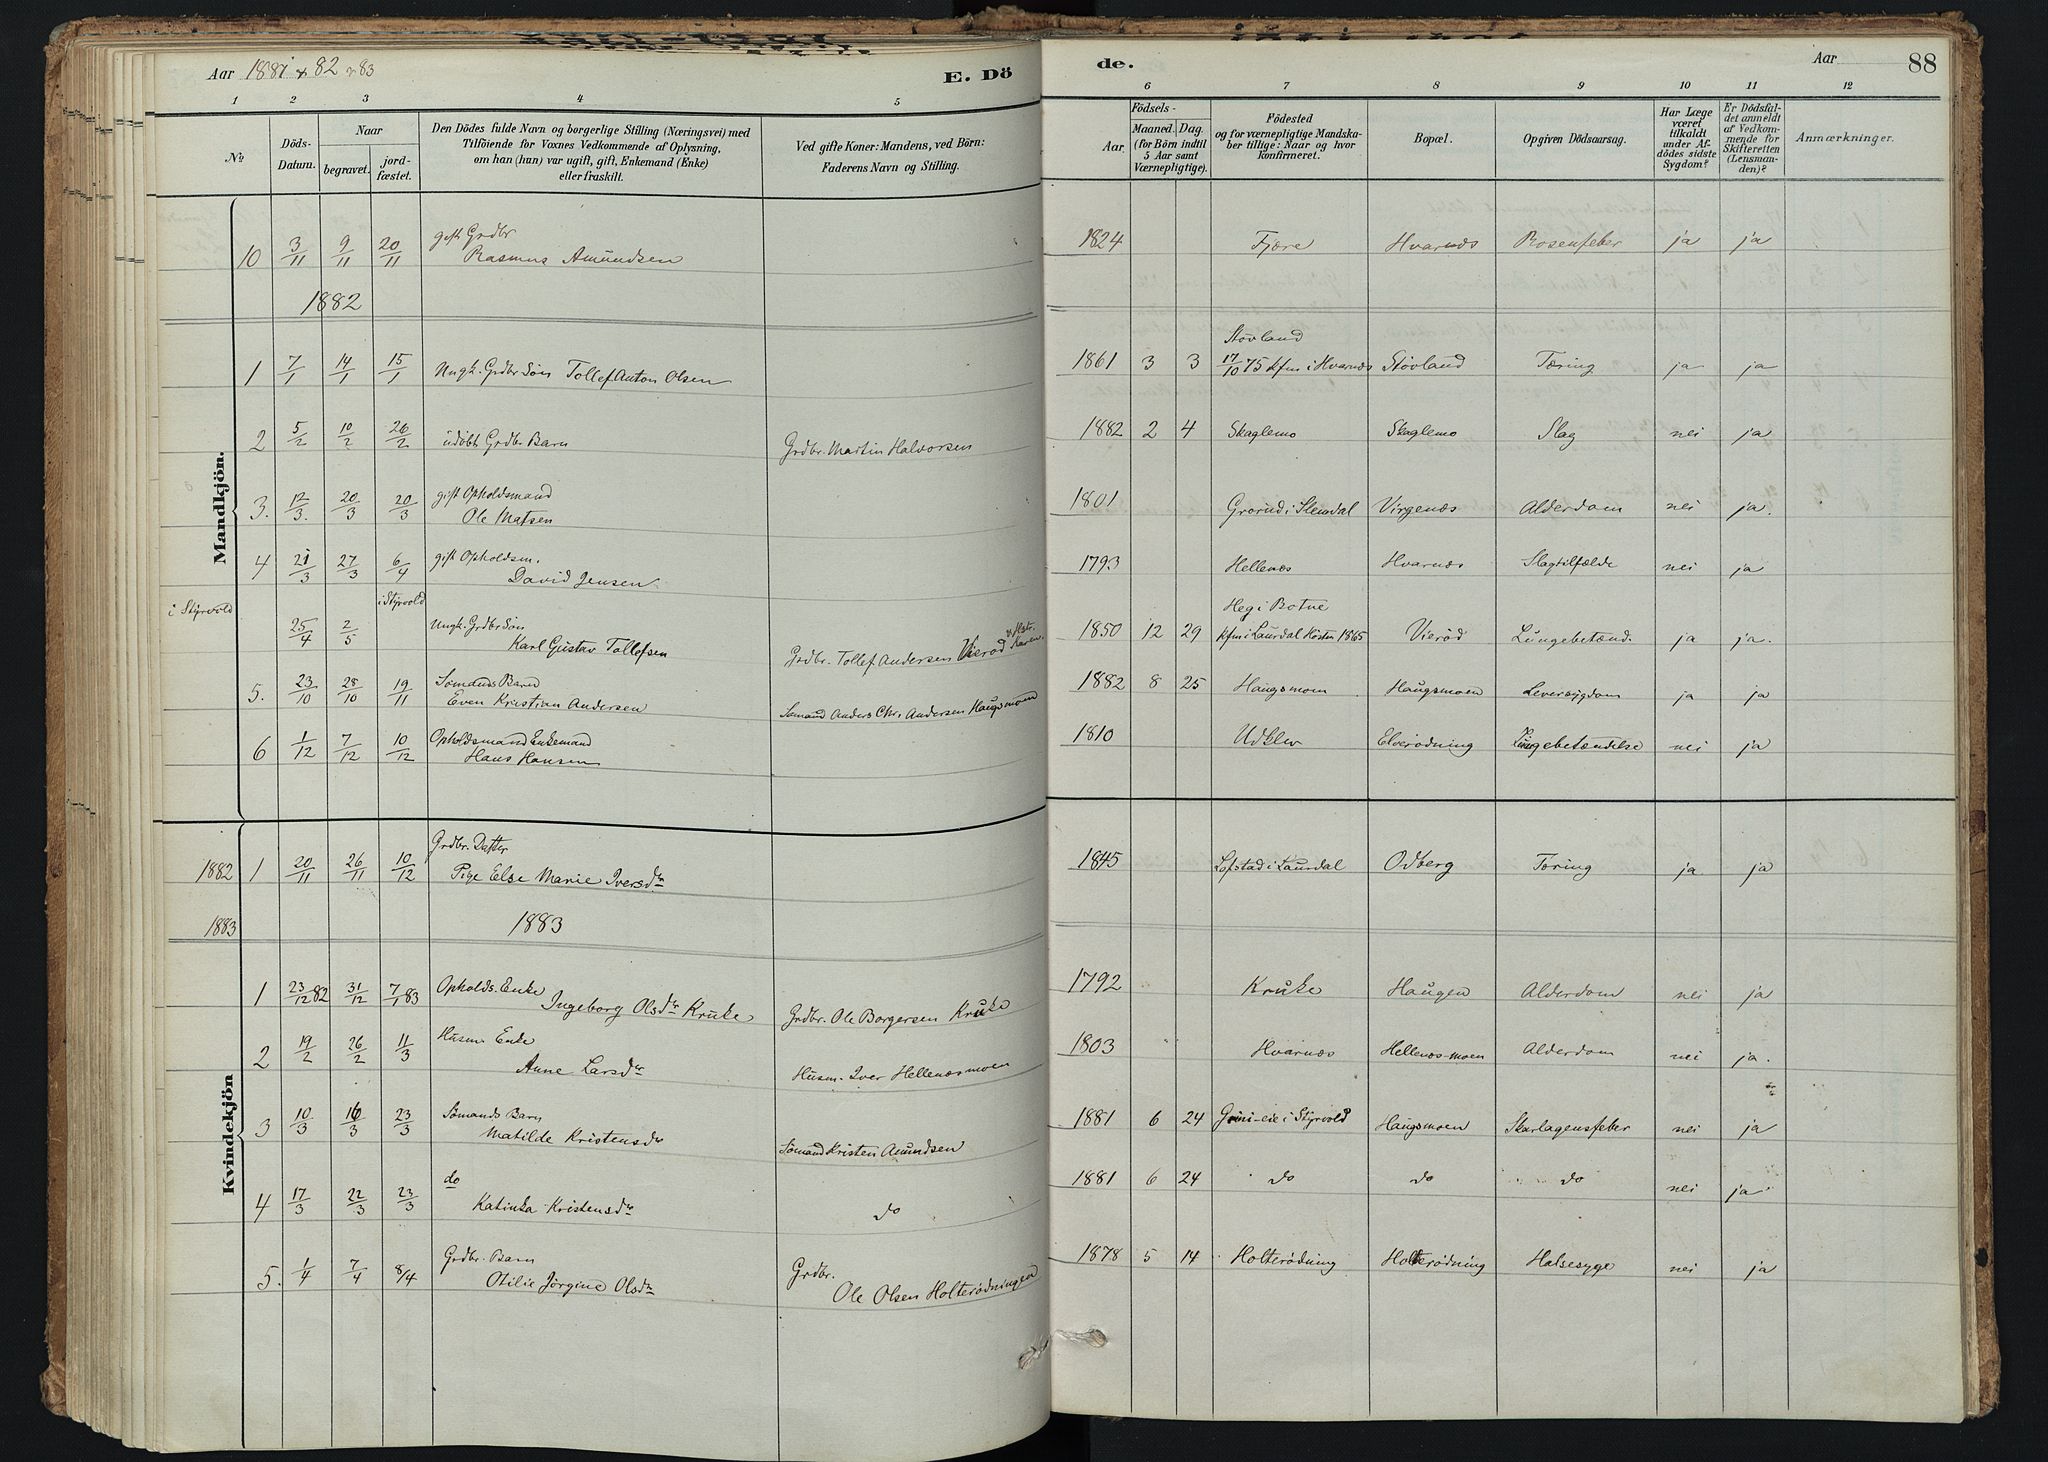 Aar 1881 & 82 & 83 E. Dö de. Aar 88
1 2 3 4 5 6 7 8 9 10 11 12
No Döds-Datum. Naar begravet. jord-fæstet. Den Dödes fulde Navn og borgerlige Stilling (Næringsvei) med Tilföiende for Voxnes Vedkommende af Oplysning, om han (hun) var ugift, gift, Enkemand (Enke) eller fraskilt. Ved gifte Koner: Mandens, ved Börn: Faderens Navn og Stilling. Aar. Födsels- Maaned. Dag. (for Börn indtil 5 Aar samt Værnepligtige). Födested og for værnepligtige Mandska-ber tillige: Naar og hvor konfirmeret. Bopæl. Opgiven Dödsaarsag. Har Læge været tilkaldt under Af-dödes sidste Sygdom? Er Dödsfal-det anmeldt af Vedkom-mende for Skifteretten (Lensman-den)? Anmærkninger.
Mandkjön.
10 3/11 9/11 20/11 gift Grdbr Rasmus Amundsen 1824 Fjære Hvarnæs Rosenfeber ja ja
1882
1 7/1 14/1 15/1 Ungk. Grdbr Søn Tollef Anton Olsen 1861 3 3 Støvland 17/10 75 kfm i Hvarnæs Støvland Tæring ja ja
2 5/2 10/2 26/2 udøbt Grdbr. Barn Grdbr. Martin Halvorsen 1882 2 4 Skaglemo Skaglemo Slag nei ja
3. 12/3. 20/3 20/3 gift Opholdsmand Ole Matsen 1801 Grorud i Slemdal Virgenæs Alderdom nei ja.
4 21/3 27/3 6/4 gift Opholdsm. David Jensen 1793 Hellenæs Hvarnæs Slagtilfælde nei ja
i Styrvold 25/4 2/5 i Styrvold Ungk. Grdbr Søn Karl Gustav Tollefsen Grdbr. Tollef Andersen Vierød Karen. 1850 12 29 Heg i Botne kfm i Laurdal Høsten 1865 Vierød Lungebetænd. ja ja.
5. 23/10 28/10 19/11 Sømands Barn Even Kristian Andersen Sømand Anders Chr. Andersen Haugsmoen 1882 8 25 Haugsmoen Haugsmoen Leversygdom ja ja
6 1/12 7/12 10/12 Opholdsmand Enkemand Hans Hansen 1810 Udklev Elverødning Lungebetændelse nei ja
Kvindekjön
1882 1 20/11 26/11 10/12 Grdbr. Datter Pige Else Marie Iversdr 1845 Løfstad i Laurdal Odberg Tæring ja ja
1883 1883
1 23/12 82 31/12 7/1 83 Opholds. Enke Ingeborg Olsdr Kruke Grdbr. Ole Borgersen Kruke 1792 Kruke Haugen Alderdom nei ja
2 19/2 26/2 11/3 Husm. Enke Anne Larsdr Husm. Iver Hellenæsmoen 1803 Hvarnæs Hellenæs-moen Alderdom nei ja.
3 10/3 16/3 23/3 Sømands Barn Matilde Kristensdr Sømand Kristen Amundsen 1881 6 24 Grini-eie i Styrvold Haugsmoen Skarlagensfeber nei ja
4 17/3 22/3 23/3 do Katinka Kristensdr do 1881 6 24 do do do nei ja
5. 1/4 7/4 8/4 Grdbr. Barn Otilie Jørgine Olsdr Grdbr. Ole Olsen Holterødningen 1878 5 14 Holterødning Holterødning Halsesyge nei ja